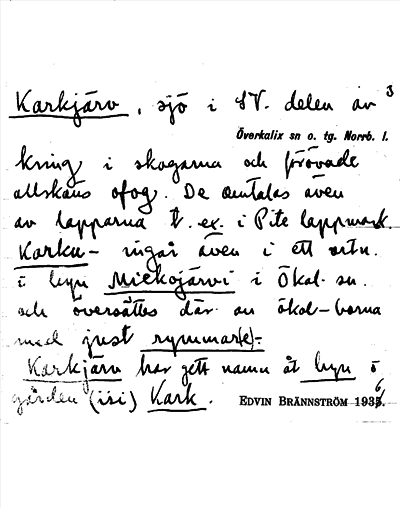 3
Karkjärv, sjö i SV. delen av
Överkalix sn o. tg. Norrb. l.
kring i skogarna och förövade
allskäns ofog. De omtalas även
av lapparna t. ex. i Pite lappmark.
Karku- ingår även i ett ortn.
i byn Mickojärvi i Ökal. sn.
och översättes där av ökal-borna
med just rymmar(e)-
Karkjärv har gett namn åt byn o
gården (isi) Kark.
EDVIN BRÄNNSTRÖM 1936.